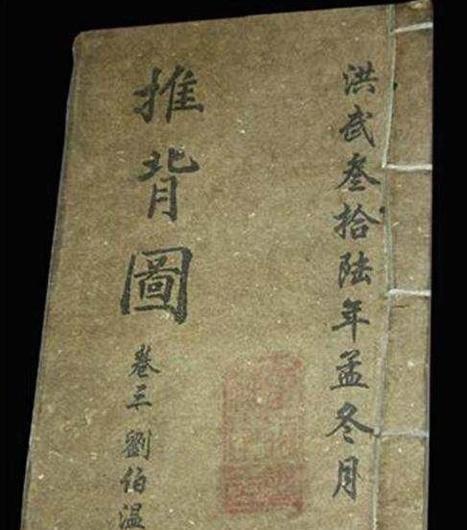 洪武叁拾陆年孟冬月
推背圖
卷三劉伯温